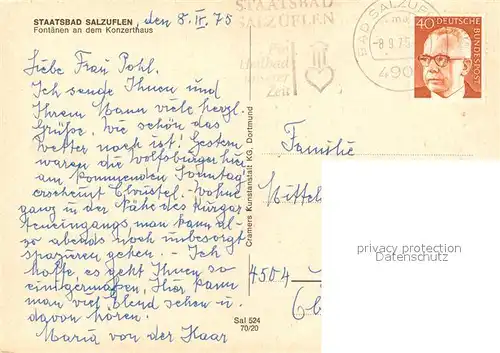 STAATSBAD SALZUFLEN, den 8. IX. 75
Fontänen an dem Konzerthaus
Liebe Frau Pohl.
Ich sende Ihnen und
Ihrem Mann viele herzl.
Grüße. Wie schön das
Wetter noch ist! Gestern
waren die Wolfsburger hier
am kommenden Sonntag
erscheint Christel. - Wohn-
gang in der Nähe des Kurgar-
teneingangs man kann al-
so abends noch unbesorgt
spazieren gehen. - Ich
hoffe, es geht Ihnen so
einigermaßen. Hier kann
man viel Elend sehen u.
davon hören.
Maria von der Haar
Cramers Kunstanstalt KG, Dortmund
Sal 524
70/20
STAATSBAD
SALZUFLEN
Heilbad
unserer
Zeit
BAD SALZUFL
-8.9.75
490
40 DEUTSCHE
BUNDESPOST
Familie
Mittel
4504
privacy protection
Datenschutz